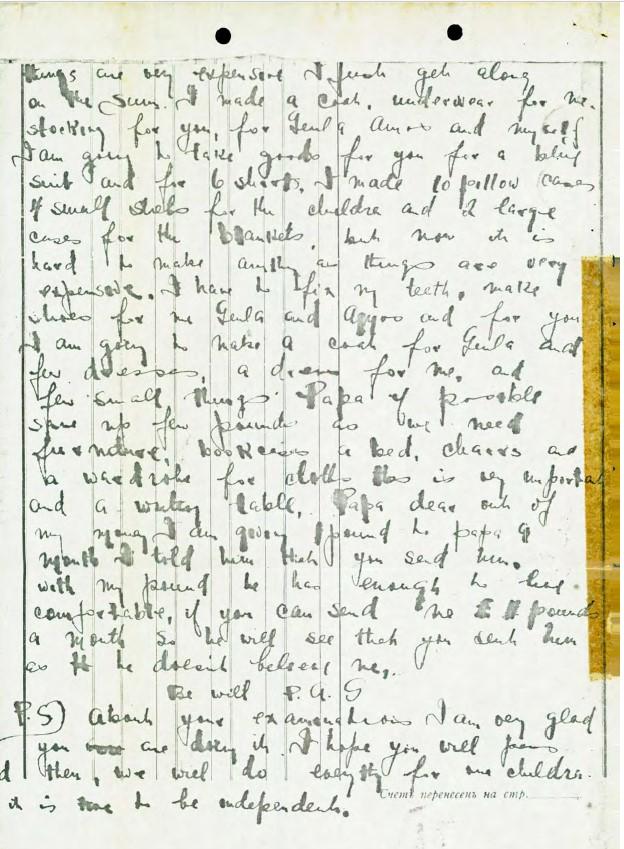 things are very expensive I just get along
on the sum. I made a coat, underwear for me.
stocking for you, for Geula Amos and myself
I am going to take goods for you for a blue
suit and for 6 shorts. I made 10 pillow cases
4 small sheets for the children and 2 large
cases for the blankets, but now it is
hard to make anything as things are very
expensive. I have to fix my teeth, make
shoes for me Geula and Amos and for you
I am going to make a coat for Geula and
few dresses, a dress for me, and
few small things Papa if possible
save up few pounds as we need
furnature, bookcases a bed, chairs and
a wardrobe for cloths this is very important
and a writing table, Papa dear out of
my money I am giving 1 pound to papa G
month I told him that you send him.
with my pound he has enough to live
comfortable, if you can send me £ 11 pounds
a month so he will see that you sent him
as he doesn't believe me,.
Be well P.A.G
P.S) About your examenations I am very glad
you are doing it. I hope you will pass
then, we will do everything for our children.
it is time to be independent.
Счетъ перенесенъ на стр.